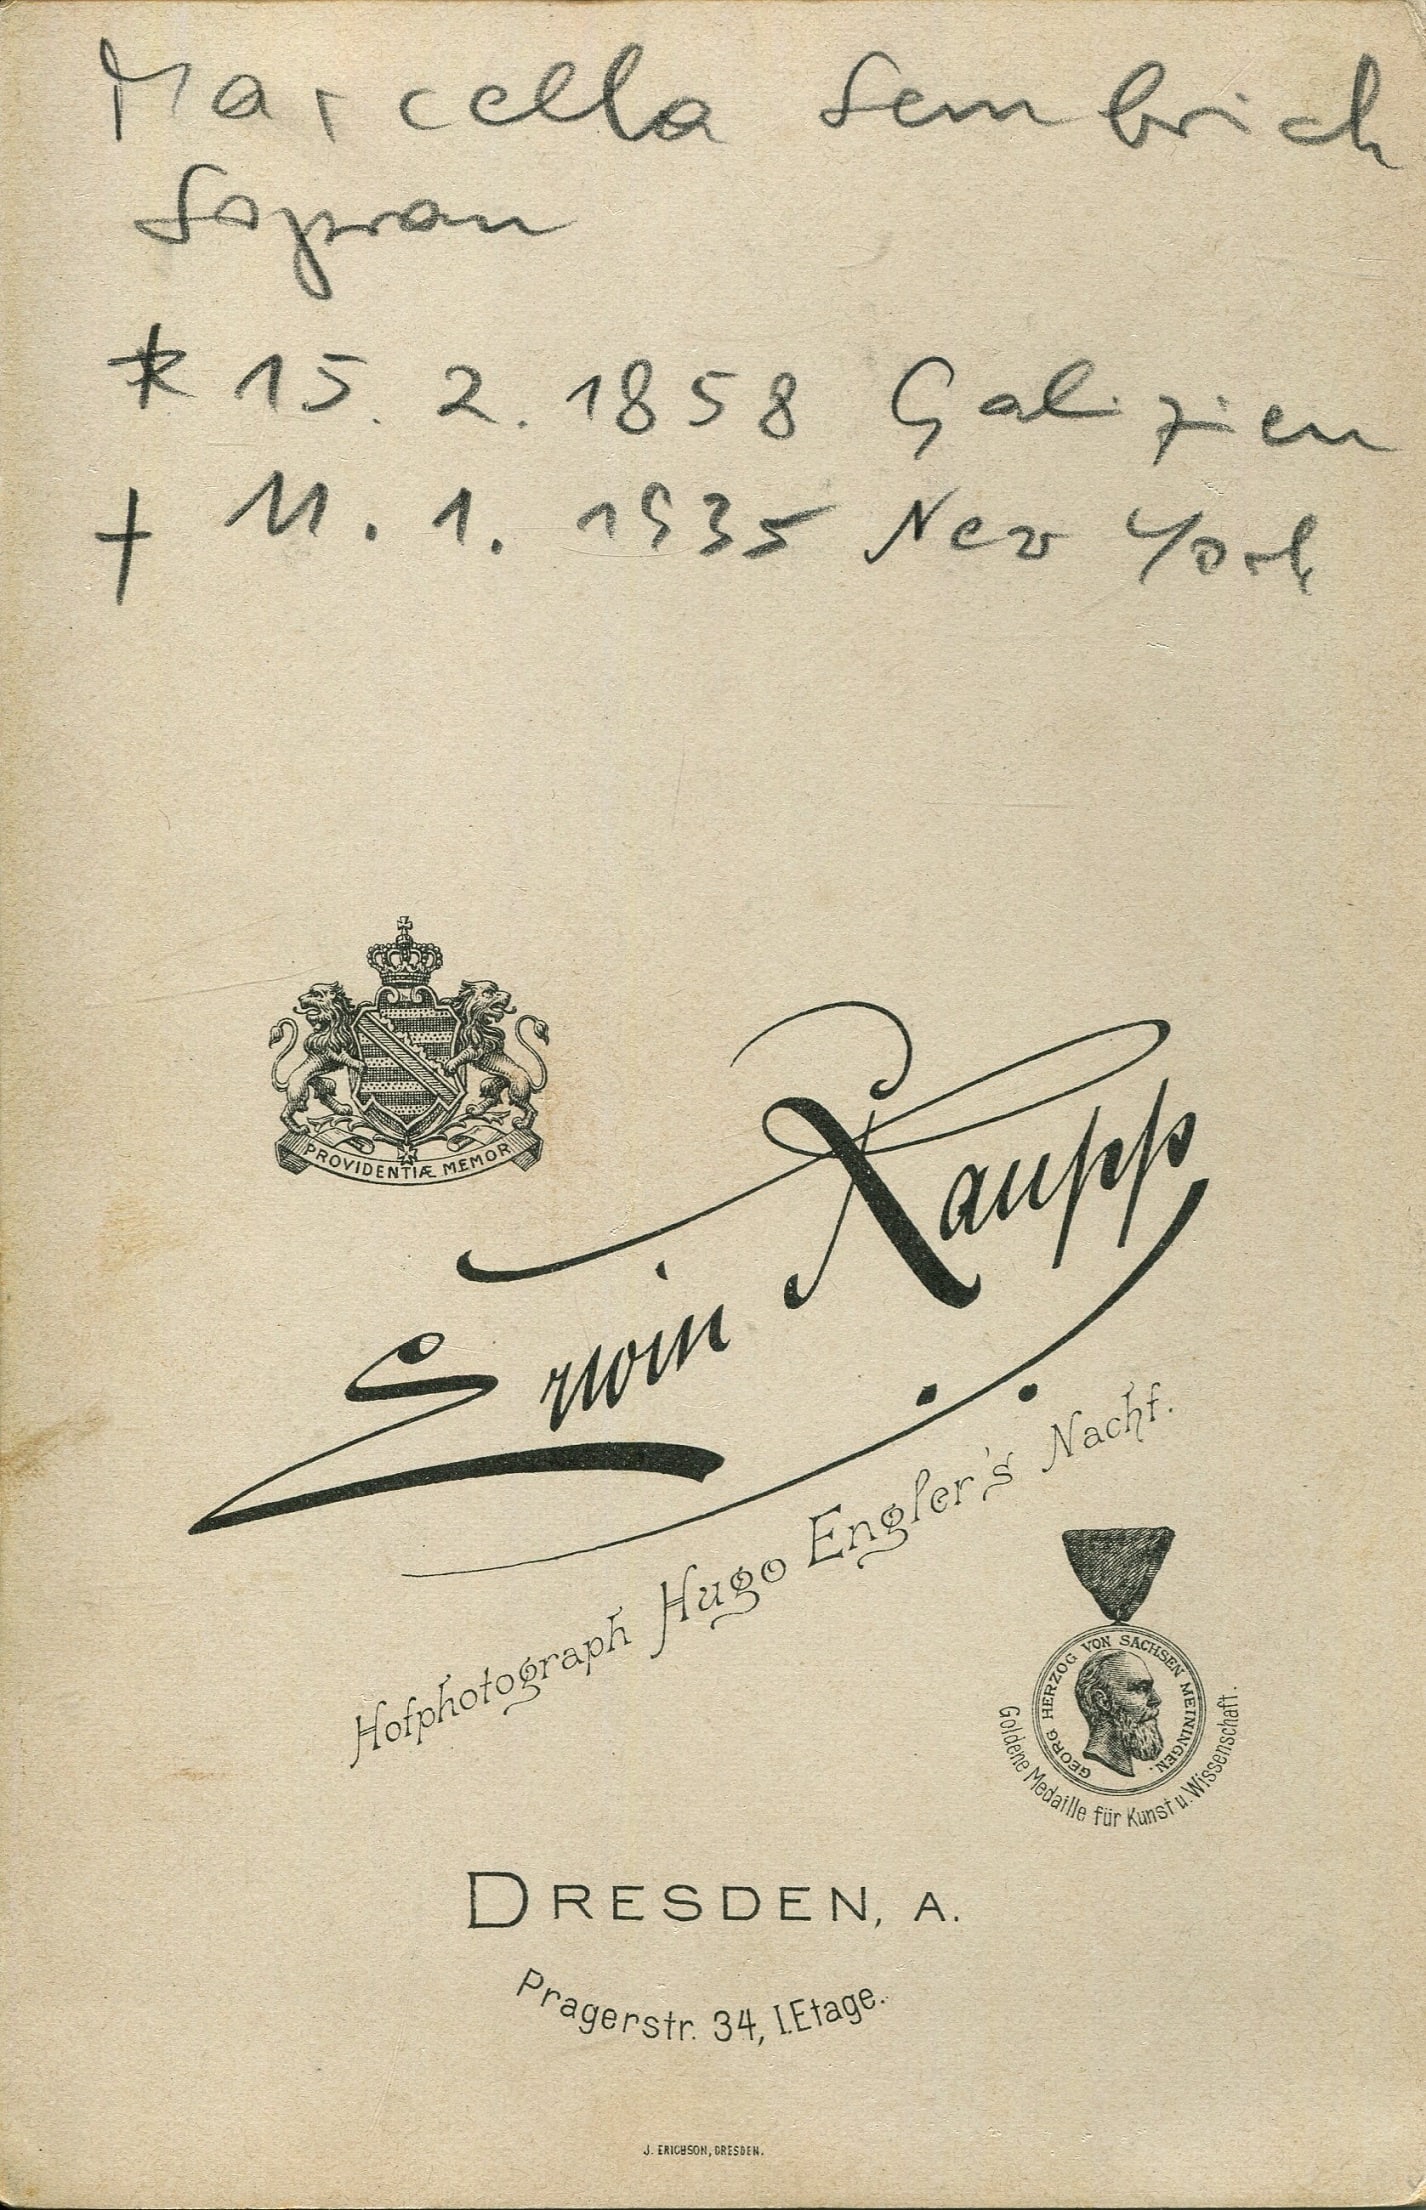 Marcella Sembrich
Sopran
* 15. 2. 1858 Galizien
† 11. 1. 1935 New York
PROVIDENTIÆ MEMOR
Erwin Raupp
Hofphotograph Hugo Engler's Nachf.
GEORG HERZOG VON SACHSEN MEININGEN.
Goldene Medaille für Kunst u. Wissenschaft.
DRESDEN, A.
Pragerstr. 34, I. Etage.
J. ERICHSON, DRESDEN.